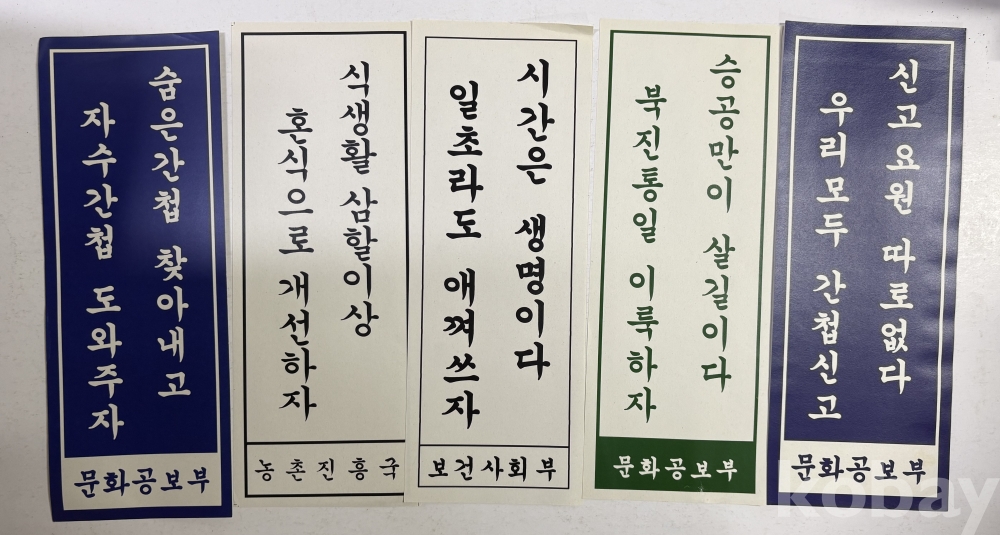 숨은간첩 찾아내고
자수간첩 도와주자
문화공보부
식생활 삼할이상
혼식으로 개선하자
농촌진흥국
시간은 생명이다
일초라도 애껴쓰자
보건사회부
승공만이 살길이다
북진통일 이룩하자
문화공보부
신고요원 따로없다
우리모두 간첩신고
문화공보부
kobay